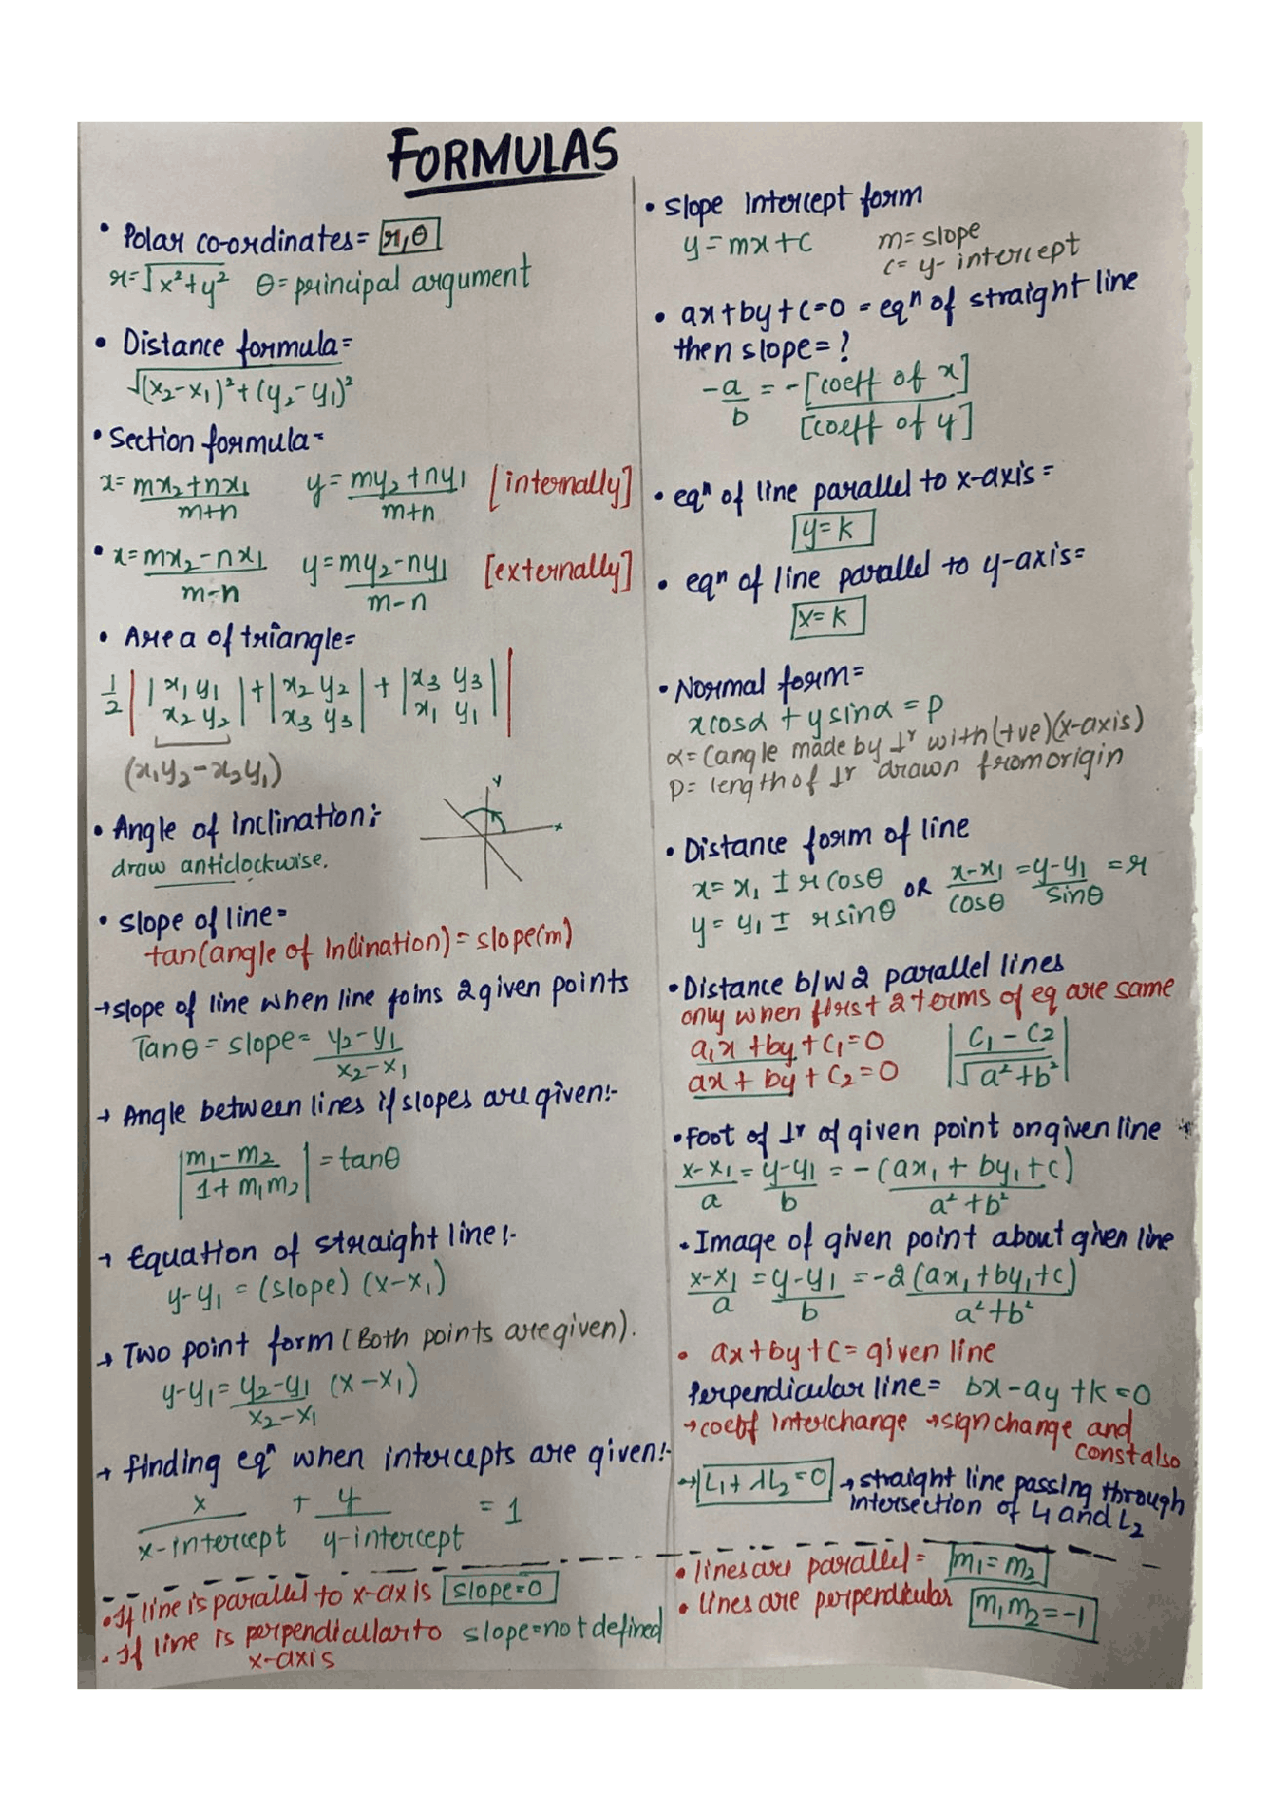 FORMULAS
• Polar co-ordinates = r,θ
r = √x²+y² θ = principal argument
• Distance formula =
√(x₂-x₁)²+(y₂-y₁)²
• Section formula =
x = mx₂+nx₁ / m+n y = my₂+ny₁ / m+n [internally]
• x = mx₂-nx₁ / m-n y = my₂-ny₁ / m-n [externally]
• Area of triangle =
1/2 | |x₁ y₁ / x₂ y₂| + |x₂ y₂ / x₃ y₃| + |x₃ y₃ / x₁ y₁| |
(x₁y₂-x₂y₁)
• Angle of Inclination:-
draw anticlockwise.
y
x
• Slope of line =
tan(angle of Inclination) = slope(m)
→ slope of line when line joins 2 given points
Tanθ = slope = y₂-y₁ / x₂-x₁
→ Angle between lines if slopes are given:-
| m₁-m₂ / 1+m₁m₂ | = tanθ
→ Equation of straight line:-
y-y₁ = (slope) (x-x₁)
→ Two point form (Both points are given).
y-y₁ = y₂-y₁ / x₂-x₁ (x-x₁)
→ finding eqⁿ when intercepts are given:-
x / x-intercept + y / y-intercept = 1
• If line is parallel to x-axis slope=0
• If line is perpendicular to slope=not defined
x-axis
• Slope Intercept form
y = mx+c m = slope
c = y-intercept
• ax+by+c=0 = eqⁿ of straight line
then slope = ?
-a/b = -[coeff of x] / [coeff of y]
• eqⁿ of line parallel to x-axis =
y = k
• eqⁿ of line parallel to y-axis =
x = k
• Normal form =
x cosα + y sinα = p
α = (angle made by ⊥ʳ with (+ve)(x-axis)
p = length of ⊥ʳ drawn from origin
• Distance form of line
x = x₁ ± r cosθ OR x-x₁ / cosθ = y-y₁ / sinθ = r
y = y₁ ± r sinθ
• Distance b/w 2 parallel lines
only when first 2 terms of eq are same
a₁x + by + C₁ = 0 | C₁-C₂ / √a²+b² |
ax + by + C₂ = 0
• Foot of ⊥ʳ of given point on given line
x-x₁ / a = y-y₁ / b = -(ax₁+by₁+c) / a²+b²
• Image of given point about given line
x-x₁ / a = y-y₁ / b = -2(ax₁+by₁+c) / a²+b²
• ax+by+c = given line
Perpendicular line = bx-ay+k=0
→ coeff Interchange → sign change and
const also
→ L₁+λL₂=0 → straight line passing through
intersection of L₁ and L₂
• lines are parallel = m₁=m₂
• lines are perpendicular m₁m₂=-1